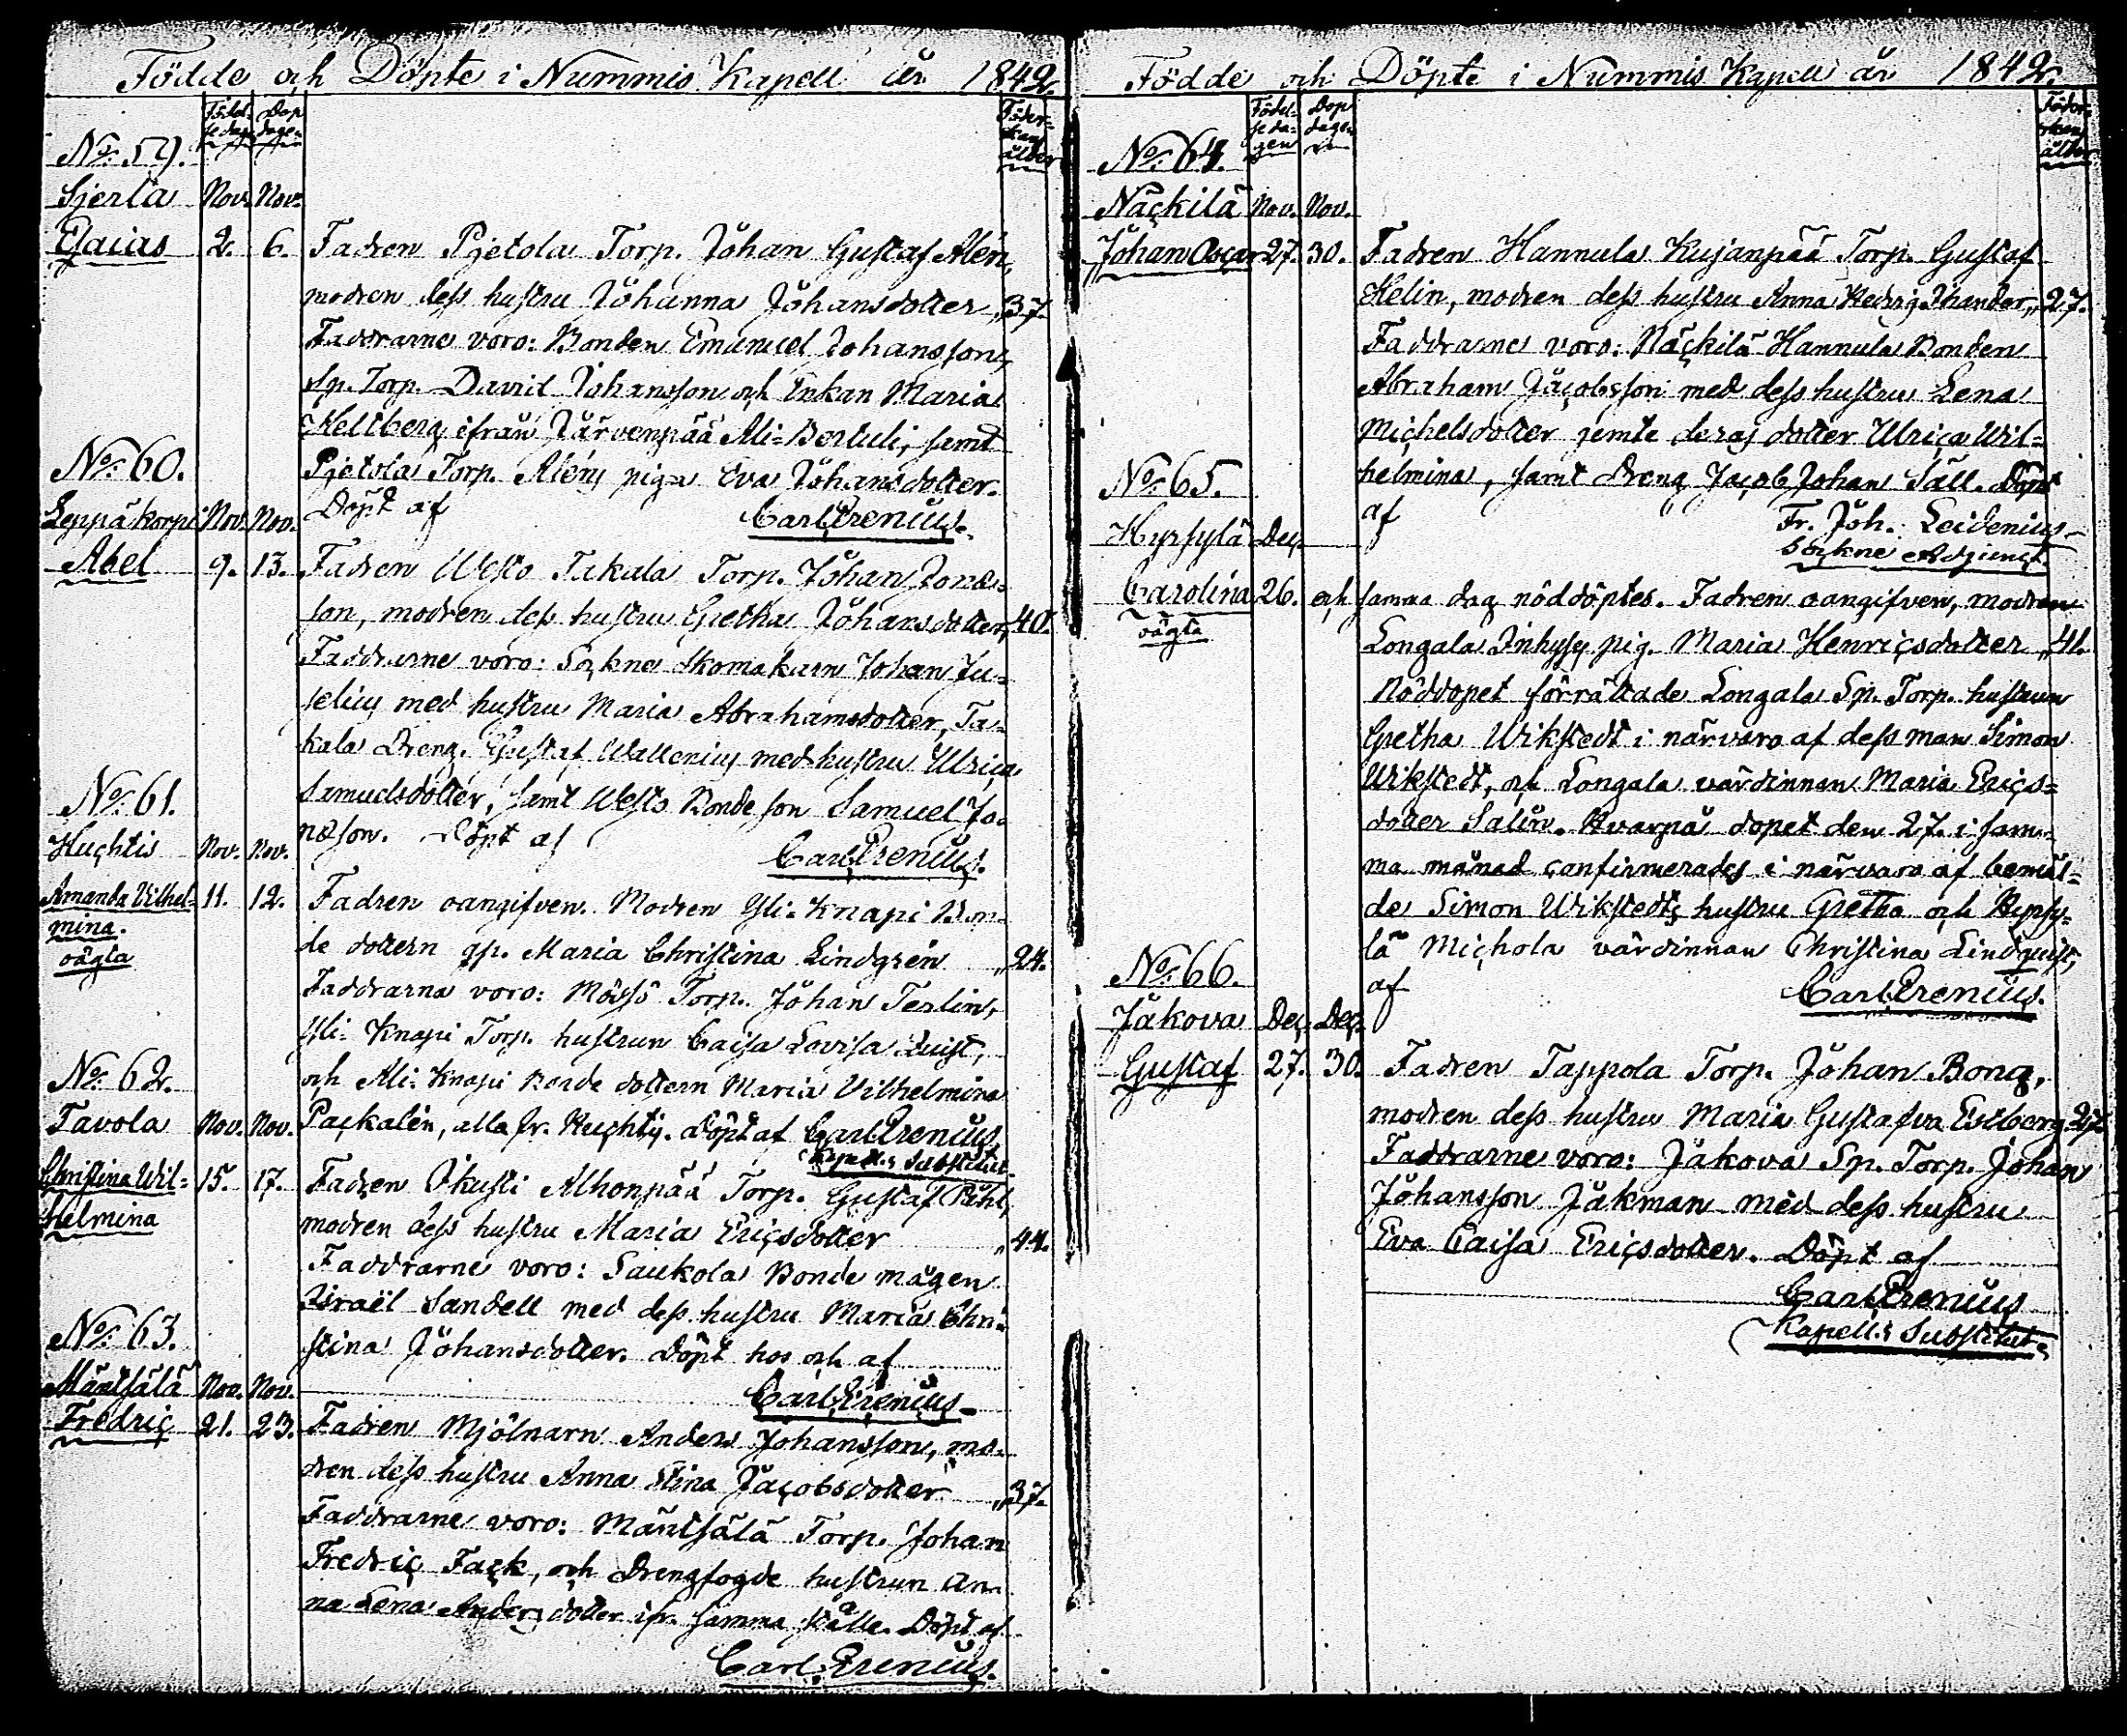 Födde och Döpte i Nummis Kapell år 1842.
Födel-
se dag
Dop
dagen
Föder-
skans
ålder
No: 59.
Sjerla Nov. Nov.
Esaias 2. 6. Fadren Pjetola Torp. Johan Gustaf Alén,
modren dess hustru Johanna Johansdotter „37.
Faddrarne voro: Bonden Emanuel Johansson,
Sp. Torp. David Johansson och Enkan Maria
Hellberg ifrån Järvenpää Ali-Bertuli, samt
Pjetola Torp. Aléns piga Eva Johansdotter.
Döpt af Carl Grenius.
No: 60.
Leppäkorpi Nov. Nov.
Abel 9. 13. Fadren Westo Takala Torp. Johan Jonas-
son, modren dess hustru Gretha Johansdotter, 40.
Faddrarne voro: Sockne Skomakarn Johan Ju-
selius med hustru Maria Abrahamsdotter, Ta-
kala Dreng. Gustaf Wallenius med hustru Ulrica
Samuelsdotter, samt Westo Bonde son Samuel Jo-
nasson. Döpt af Carl Grenius.
No: 61.
Huchtis Nov. Nov.
Amanda Vilhel- 11. 12. Fadren oangifven. Modren Yli-Knapi Bon-
mina.
oägta
de dottern qp. Maria Christina Lindgrén „24.
Faddrarna voro: Mössö Torp. Johan Terlin,
Yli-Knapi Torp. hustrun Caisa Lovisa Quist,
och Ali-Knapi Bonde dottern Maria Vilhelmina
Packalén, alla fr. Huchtis. Döpt af Carl Grenius,
Kapells Substitut
No: 62.
Tavola Nov. Nov.
Christina Wil- 15. 17. Fadren Okusti Alhonpää Torp. Gustaf
helmina
modren dess hustru Maria Ericsdotter „44.
Faddrarne voro: Saukola Bonde mågen
Israël Sandell med dess hustru Maria Chri-
stina Johansdotter. Döpt hos och af
Carl Grenius
No: 63.
Mäntsälä Nov. Nov.
Fredric 21. 23. Fadren Mjölnarn Anders Johansson, mo-
dren dess hustru Anna Stina Jacobsdotter „37.
Faddrarne voro: Mäntsälä Torp. Johan
Fredric Fack, och Drengfogde hustrun An-
na Lena Andersdotter ifr. samma ställe. Döpt af
Carl Grenius.
Födde och Döpte i Nummis Kapell år 1842.
Födel-
se da-
gen
Dop
dagen
Föder-
skans
ålder
No: 64.
Näckilä Nov. Nov.
Johan Oscar 27. 30. Fadren Hannula Kujanpää Torp. Gustaf
Helin, modren dess hustru Anna Hedvig Thander, „27.
Faddrarne voro: Näckilä Hannula Bonden
Abraham Jacobsson med dess hustru Lena
Michelsdotter jemte deras dotter Ulrica Wil-
helmina, samt Dreng Jacob Johan Säll. Döpt
af Fr. Joh. Leidenius
Sockne Adjunct.
No: 65.
Hyrsylä Dec.
Carolina 26. och samma dag nöddöptes. Fadren oangifven, modren
oägta
Longala Inhyses pig. Maria Henricsdotter „41.
Nöddopet förrättade Longala Sp. Torp. hustrun
Gretha Wikstedt i närvaro af dess man Simon
Wikstedt, och Longala värdinnan Maria Erics-
dotter Salin. Hvarpå dopet den 27. i sam-
ma månad confirmerades i närvaro af bemäl-
de Simon Wikstedts hustru Gretha och Hyrsy-
lä Michola värdinnan Christina Lindquist,
af Carl Grenius.
No: 66.
Jakova Dec. Dec.
Gustaf 27. 30. Fadren Tappola Torp. Johan Bong,
modren dess hustru Maria Gustafva Estberg 27.
Faddrarne voro: Jakova Sp. Torp. Johan
Johansson Jakman med dess hustru
Eva Caisa Ericsdotter. Döpt af
Carl Grenius
Kapells Substitut